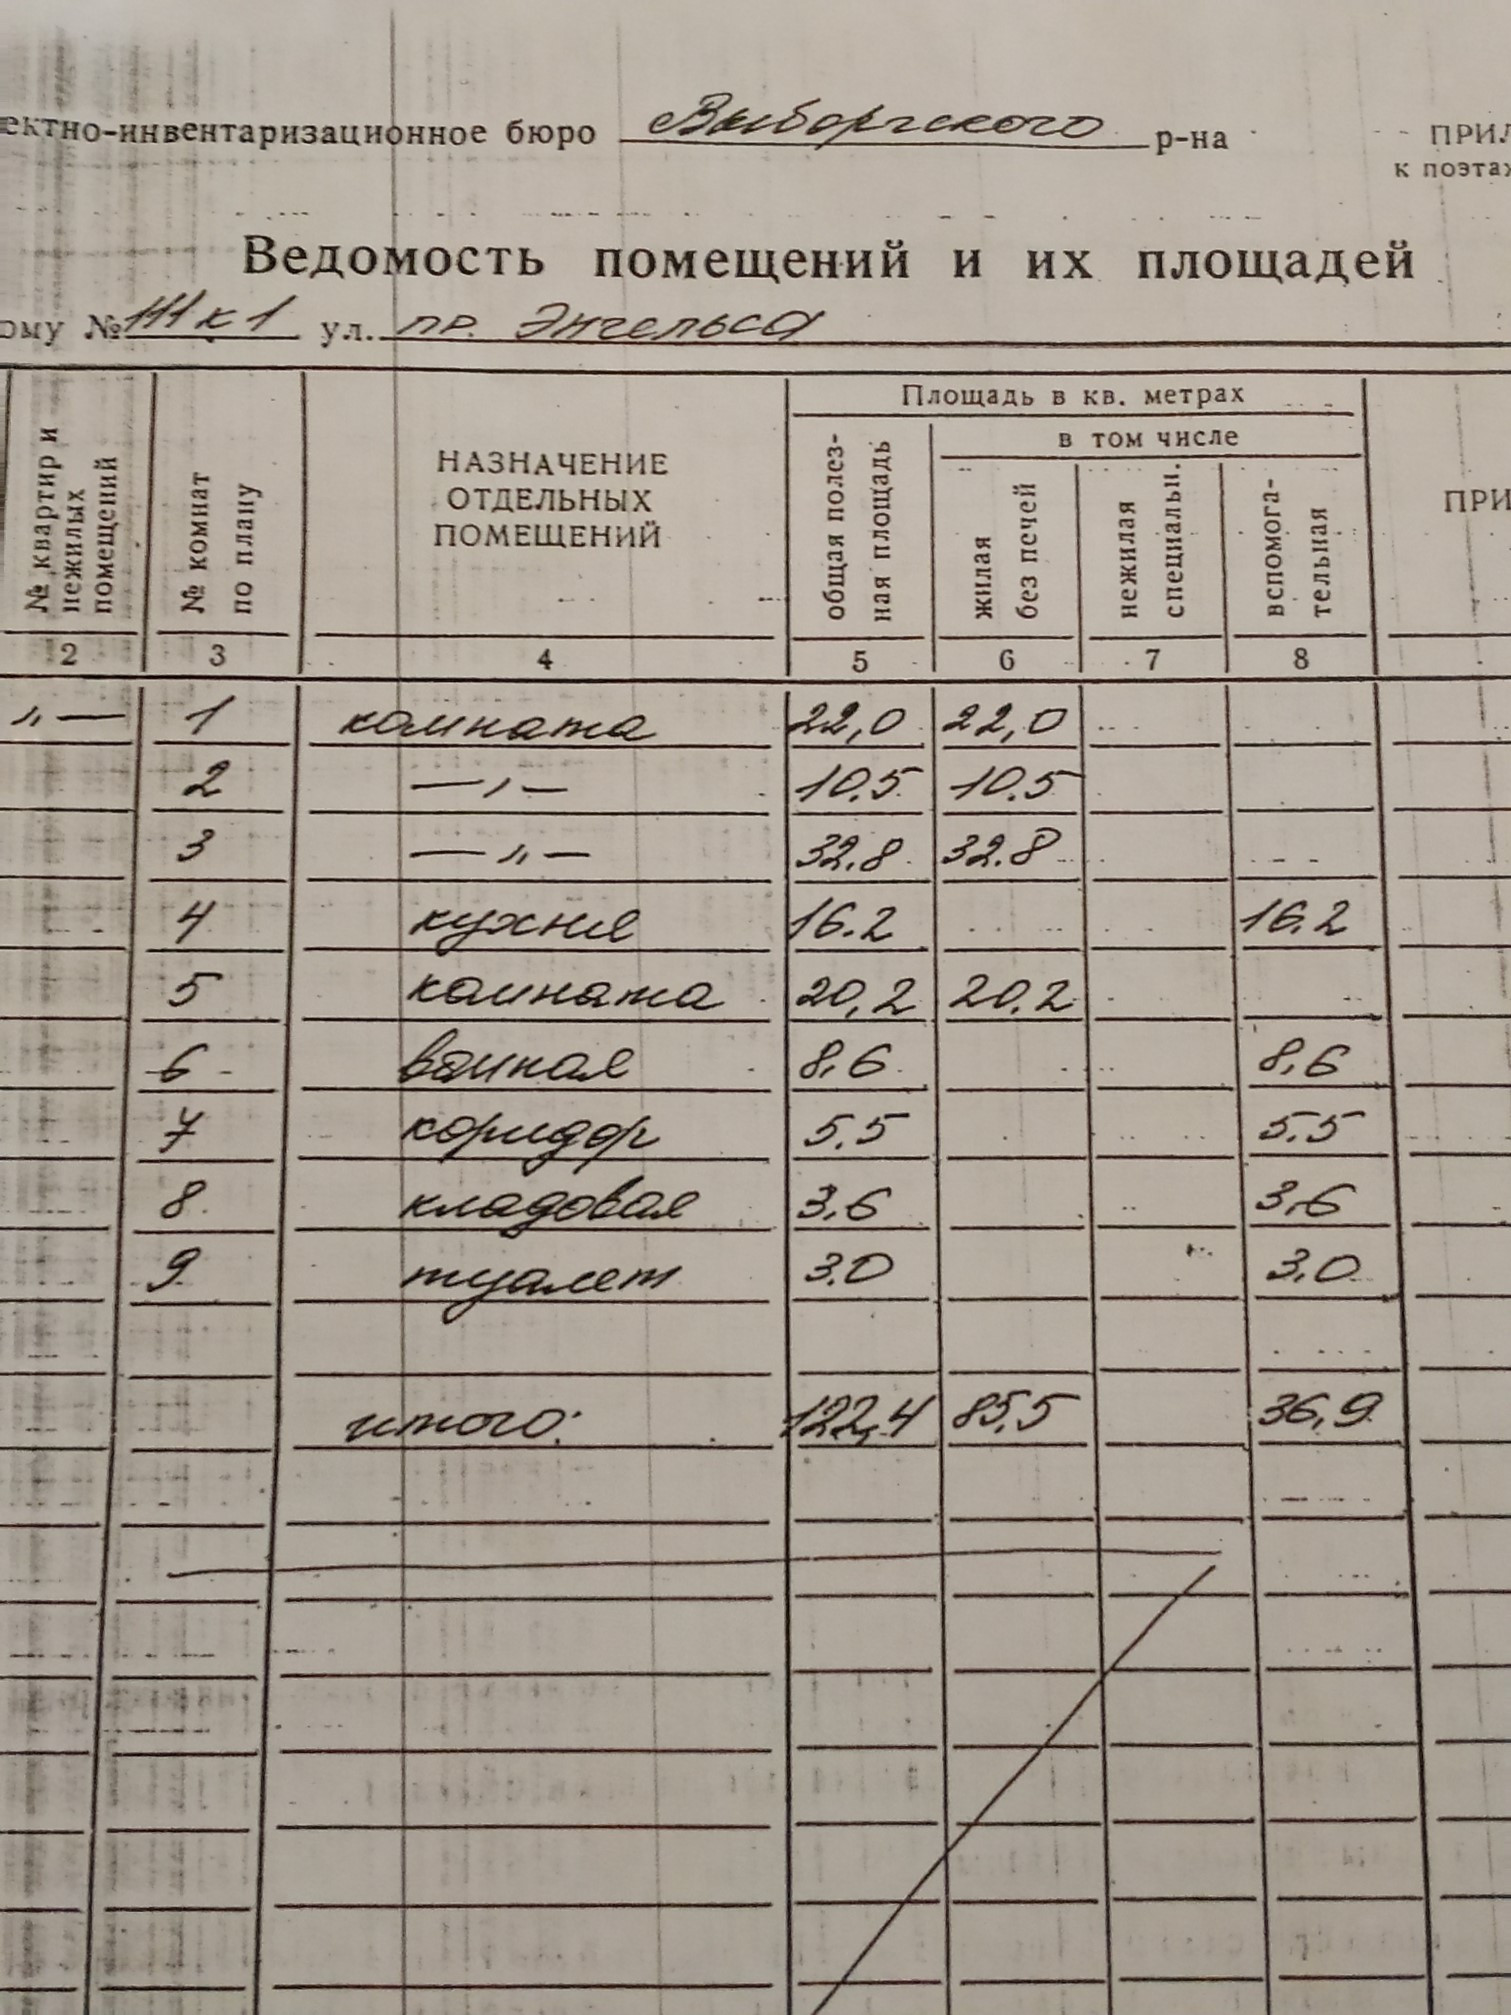 ектно-инвентаризационное бюро Выборгского р-на
ПРИЛ
к поэтаж
Ведомость помещений и их площадей
ому № 111 к 1 ул. пр. Энгельса
№ квартир и нежилых помещений
№ комнат по плану
НАЗНАЧЕНИЕ
ОТДЕЛЬНЫХ
ПОМЕЩЕНИЙ
Площадь в кв. метрах
общая полез-
ная площадь
в том числе
жилая
без печей
нежилая
специальн.
вспомога-
тельная
ПРИ
2 3 4 5 6 7 8
〃— 1 комната 22,0 22,0
2 —〃— 10.5 10.5
3 —〃— 32.8 32.8
4 кухня 16.2 16.2
5 комната 20,2 20.2
6 ванная 8,6 8,6
7 коридор 5.5 5.5
8 кладовая 3,6 3,6
9 туалет 3.0 3,0
итого: 122,4 85,5 36,9